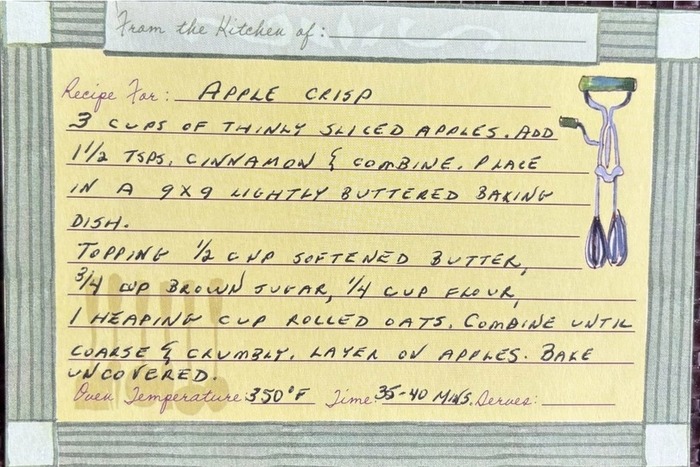 From the Kitchen of:
Recipe For: APPLE CRISP
3 CUPS OF THINLY SLICED APPLES. ADD
1 1/2 TSPS. CINNAMON & COMBINE. PLACE
IN A 9X9 LIGHTLY BUTTERED BAKING
DISH.
TOPPING 1/2 CUP SOFTENED BUTTER,
3/4 CUP BROWN SUGAR, 1/4 CUP FLOUR,
1 HEAPING CUP ROLLED OATS. COMBINE UNTIL
COARSE & CRUMBLY. LAYER ON APPLES. BAKE
UNCOVERED.
Oven Temperature 350°F Time 35-40 MINS. Serves: